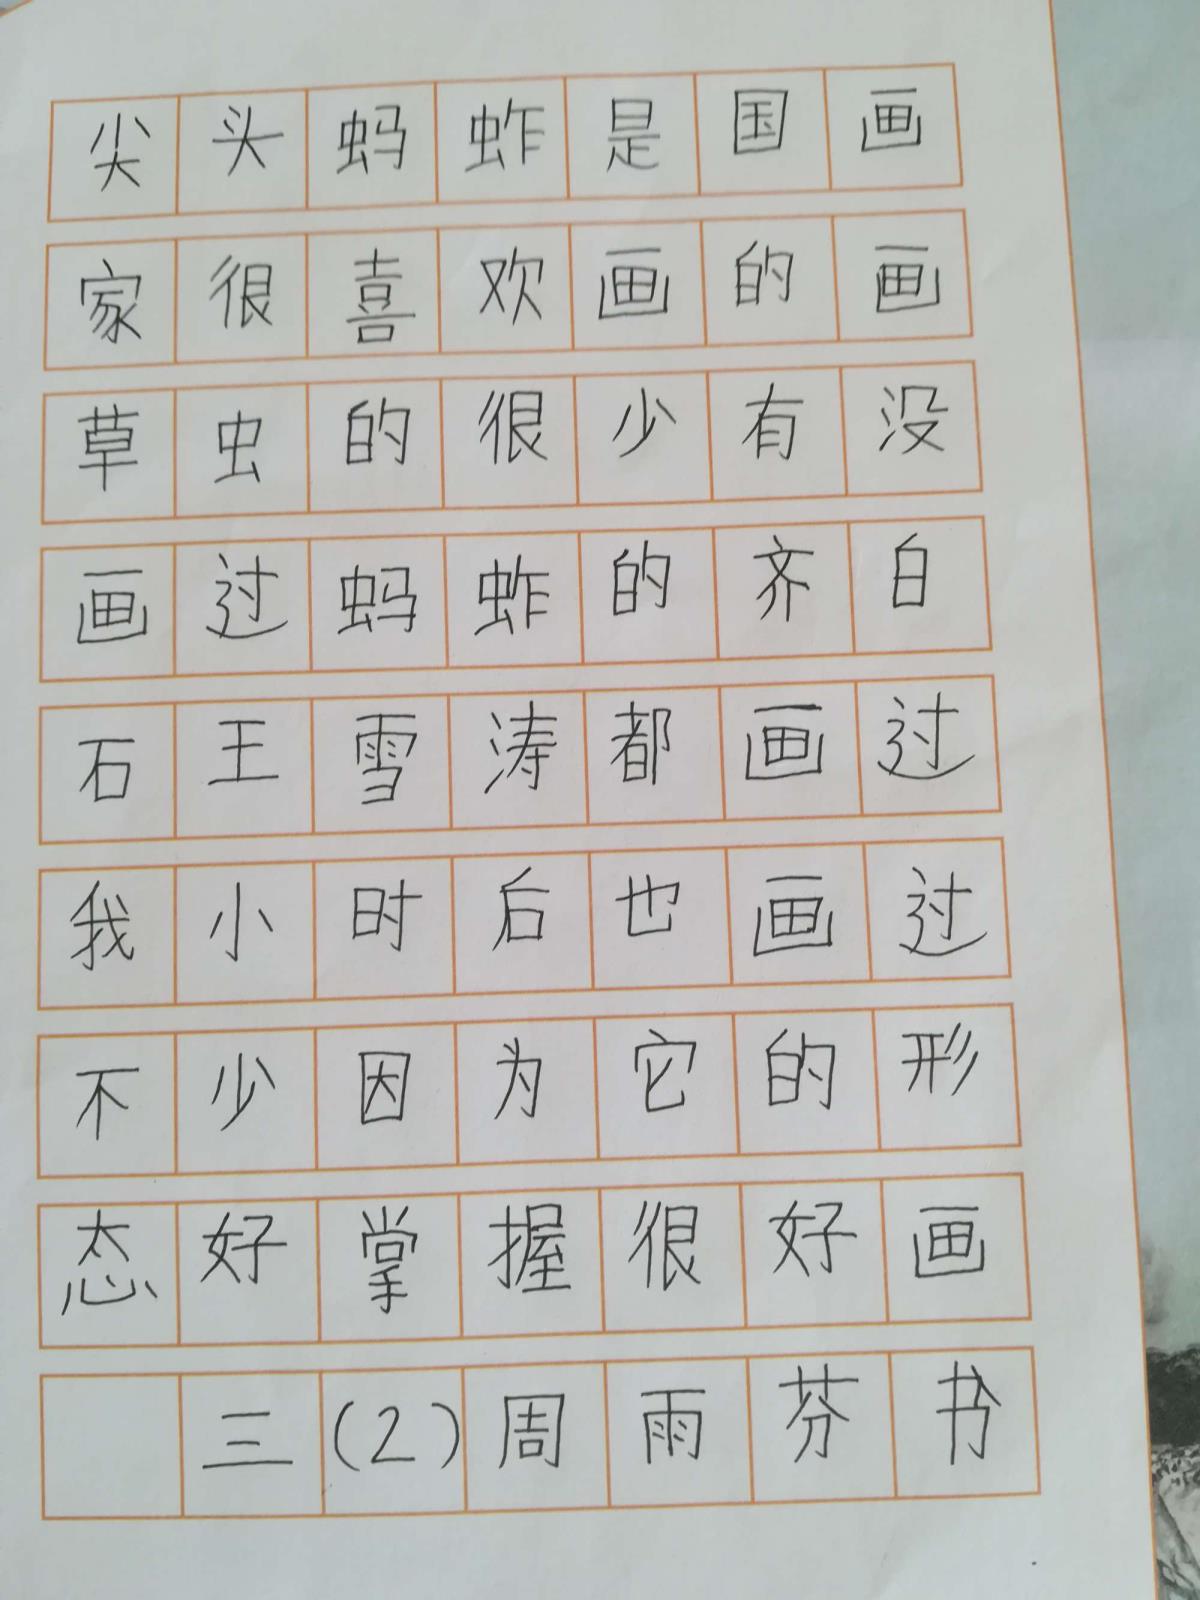 尖头蚂蚱是国画
家很喜欢画的画
草虫的很少有没
画过蚂蚱的齐白
石王雪涛都画过
我小时后也画过
不少因为它的形
态好掌握很好画
三(2)周雨芬书